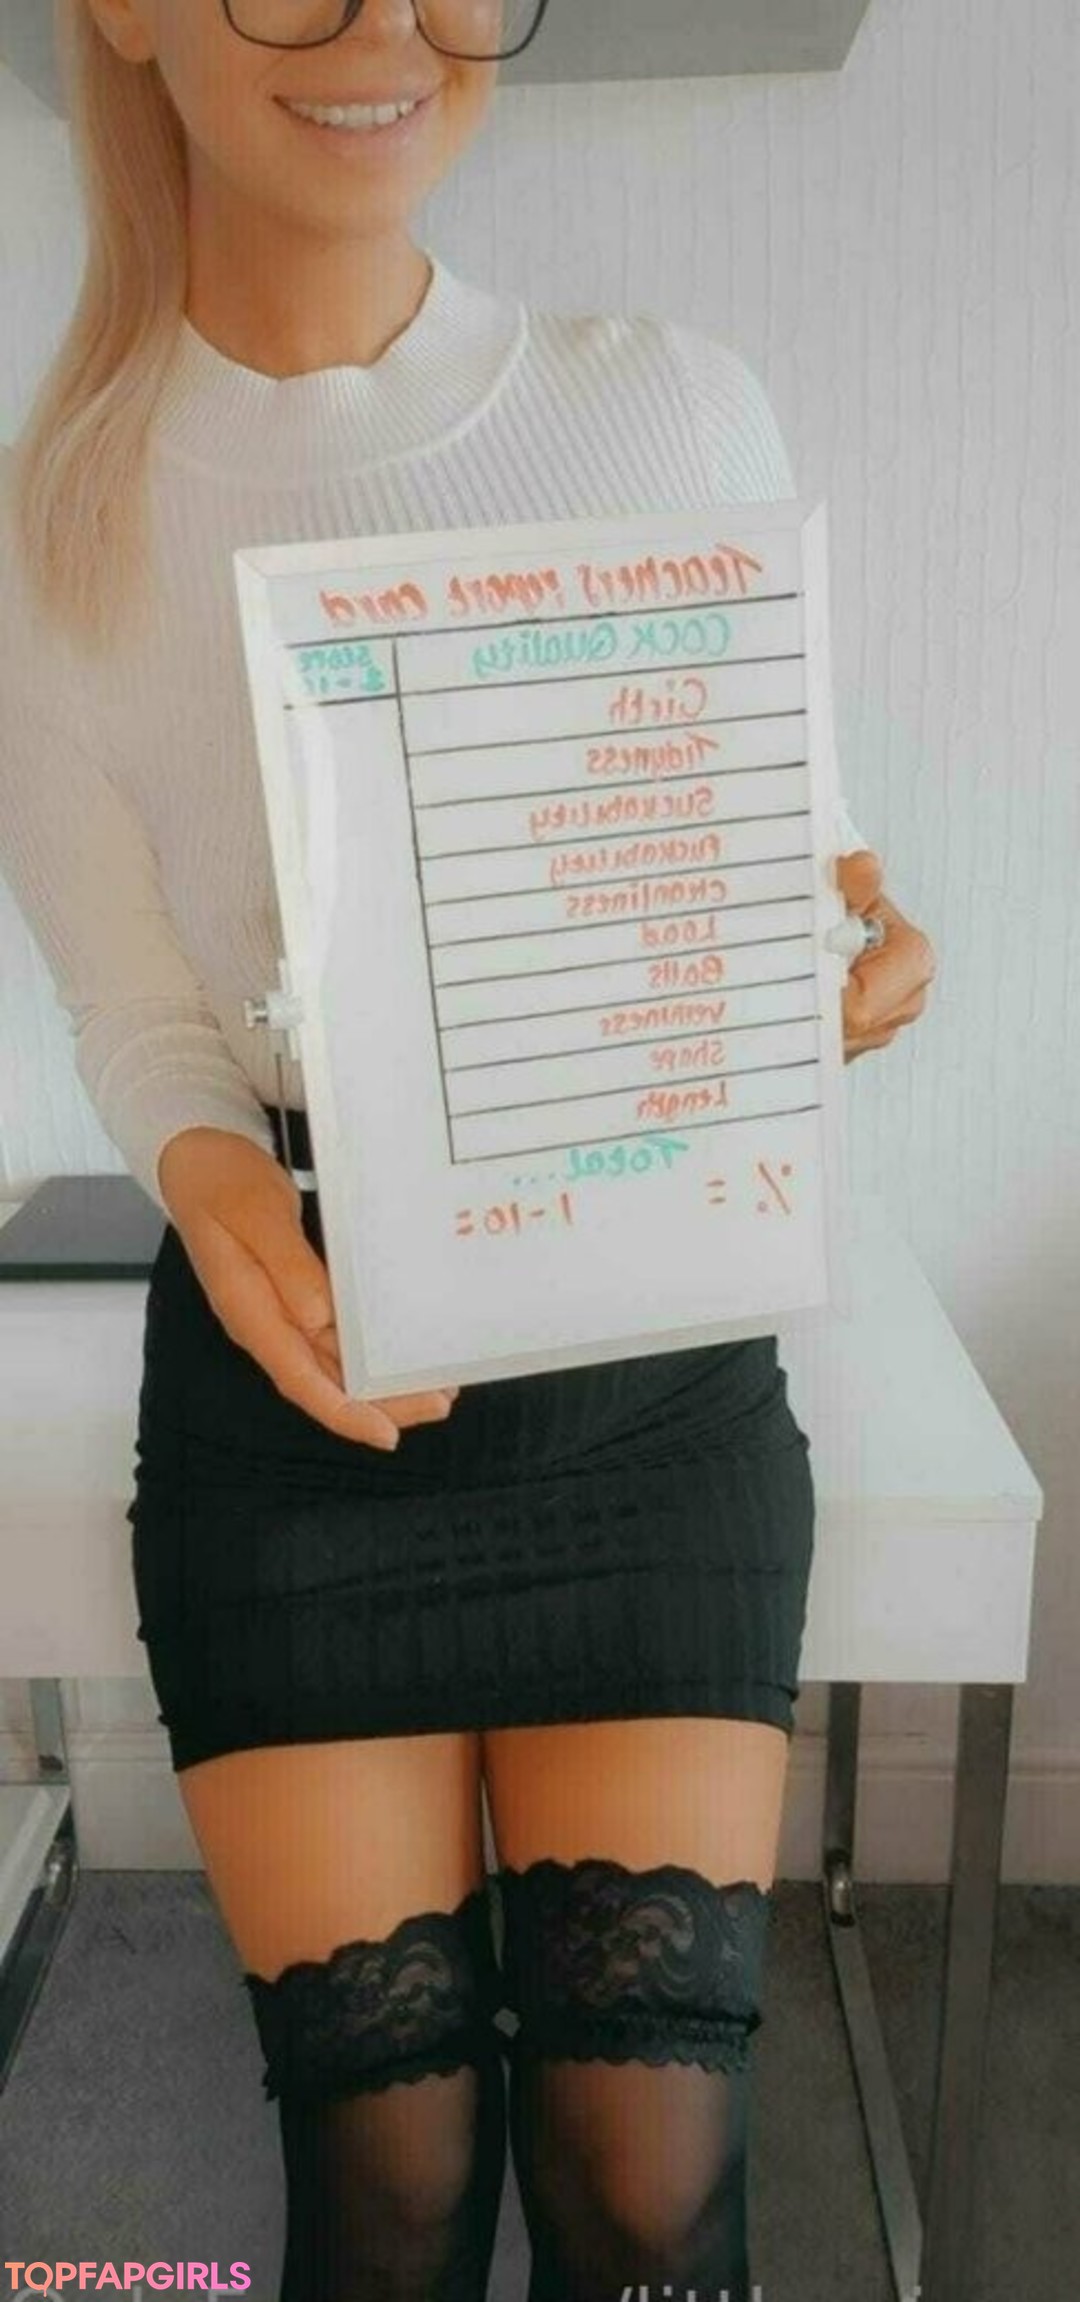 Teachers report card
COCK Quality
SCORE
1-10
Girth
Tidyness
Suckability
Fuckability
Cleanliness
Load
Balls
Veininess
Shape
Length
Total...
% =
1-10 =
TOPFAPGIRLS